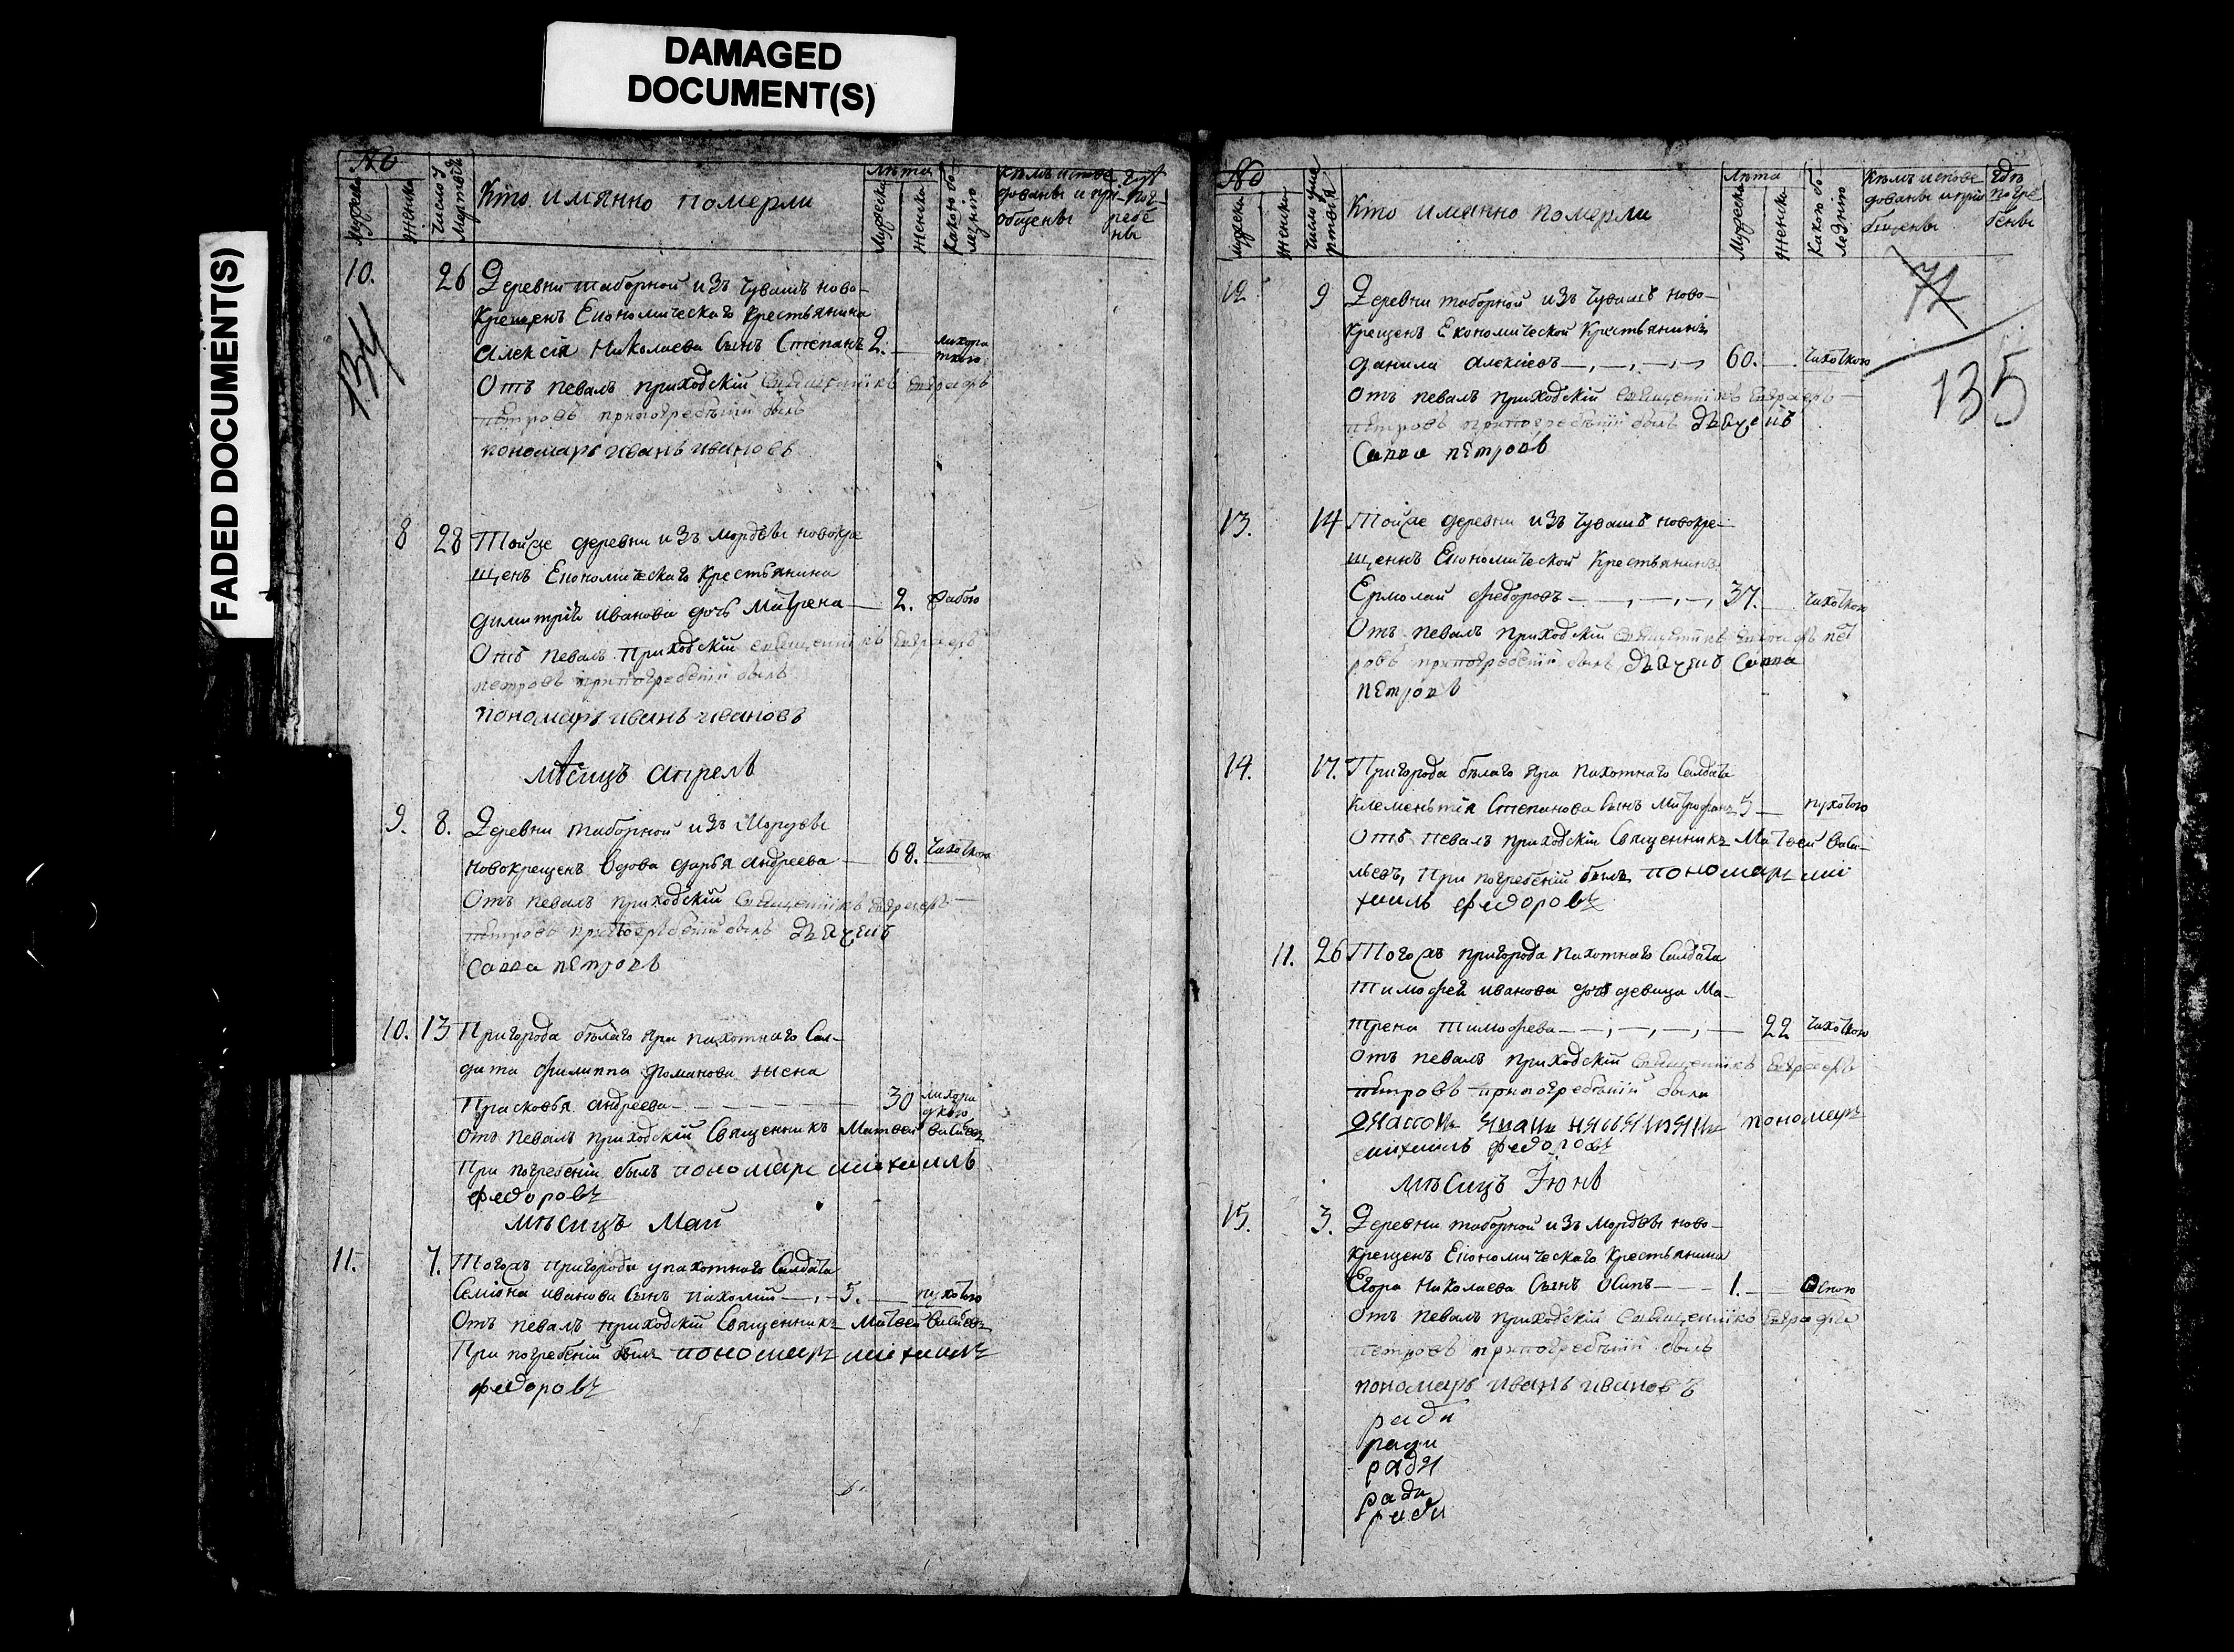 DAMAGED
DOCUMENT(S)
FADED DOCUMENT(S)
№
Мужеска
Женска
Число
Кто имянно померли
Лѣта
Мужеска
Женска
Какою бо
лезнію
Кѣмъ испове
дованы и прі
общены
гдѣ
пог
ребе
ны
134
10. 26 Деревни таборной изъ Чувашъ ново-
крещенъ Економическаго крестьянина
Алексія Николаева Сынъ Степанъ 2. — лихора
ткою
Отъ певалъ приходскій священникъ Евграфъ
петровъ припогребеніи былъ
пономарь иванъ ивановъ
8 28 Тойже деревни изъ мордвы новокре
щенъ Економическаго Крестьянина
димитрія иванова дочь Матрена — 2. Рабою
Отъ певалъ приходскій священникъ Евграфъ
петровъ припогребеніи былъ
пономарь иванъ ивановъ
мѣсицъ апрель
9. 8. Деревни таборной изъ Мордвы
новокрещенъ вдова дарья андреева — 68. чахоткою
Отъ певалъ приходскій священникъ Евграфъ
петровъ припогребеніи былъ дьячекъ
Савва петровъ
10. 13 Пригорода бѣлаго яра пахотнаго Сал-
дата филиппа романова жена
Прасковья андреева — 30 лихора
дкою
Отъ певалъ приходскій Священникъ Матвеи васильевъ
При погребеніи былъ пономарь михаилъ
федоровъ
мѣсицъ Маи
11. 7. Тогожъ пригорода пахотнаго Салдата
Семіона иванова Сынъ пахомии — 5. —
Отъ певалъ приходскій Священникъ Матвеи васильевъ
При погребеніи былъ пономарь михаилъ
федоровъ
№
Мужеска
Женска
Число уме
ртвія
Кто имянно померли
Лѣта
Мужеска
Женска
Какою бо
лезнію
Кѣмъ испове
дованы и прио
бщены
Гдѣ
погре
бены
135
12 9 Деревни таборной изъ Чувашъ ново-
крещенъ Економической Крестьянинъ
данила алексіевъ — 60. — чахоткою
Отъ певалъ приходскій священникъ Евграфъ
петровъ припогребеніи былъ дьячекъ
Савва петровъ
13. 14 Тойже деревни изъ Чувашъ новокре-
щеннъ Економической Крестьянинъ
Ермолаи федоровъ — 37. — чахоткою
Отъ певалъ приходскій священникъ Евграфъ пет
ровъ припогребеніи былъ дьячекъ Савва
петровъ
14. 17. Пригорода бѣлаго яра пахотнаго Салдата
клеменьтія Степанова Сынъ Митрофанъ 5 —
Отъ певалъ приходскій Священникъ Матвеи васи-
льевъ, При погребеніи былъ пономарь ми
хаилъ федоровъ
11. 26 Тогожъ пригорода пахотнаго Салдата
тимофея иванова дочь девица Ма-
трена тимофева — 22 чахоткою
Отъ певалъ приходскій священникъ Евграфъ
петровъ припогребеніи были
пономарь
михаилъ федоровъ
мѣсицъ Іюнь
15. 3. Деревни таборной изъ мордвы ново-
крещенъ Економическаго Крестьянина
Егора Николаева Сынъ Осипъ — 1. — Оспою
Отъ певалъ приходскій священникъ Евграфъ
петровъ припогребеніи былъ
пономарь иванъ ивановъ
ради
ради
ради
ради
ради